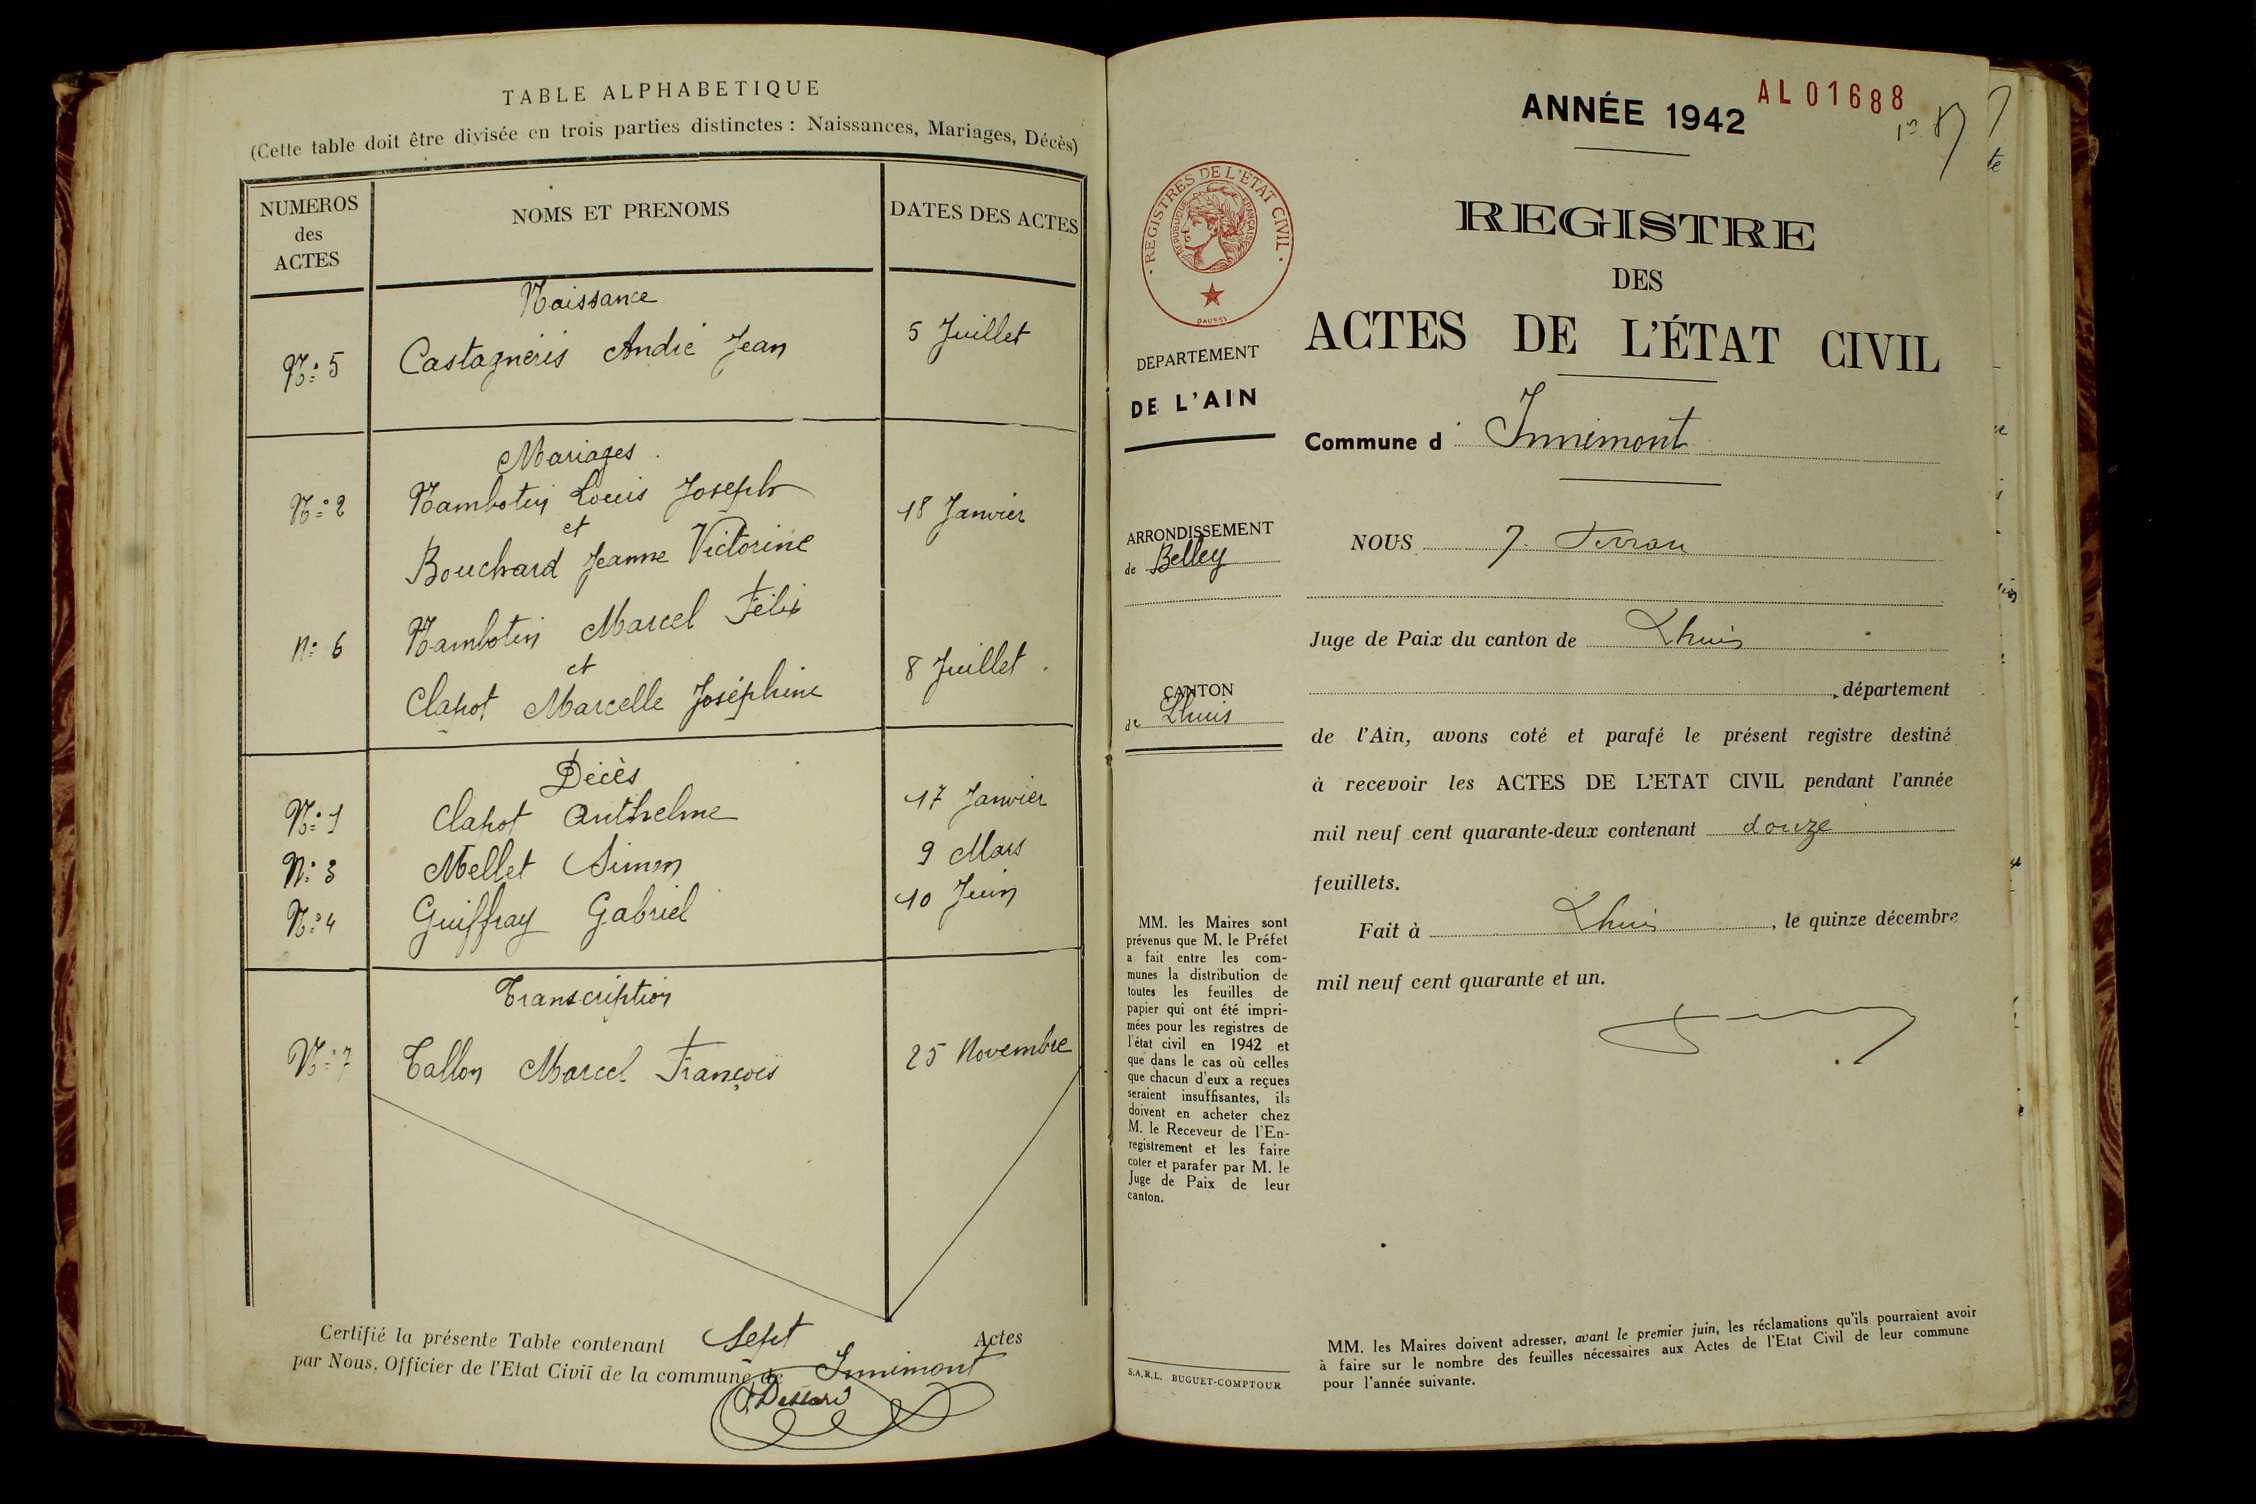 TABLE ALPHABETIQUE
(Cette table doit être divisée en trois parties distinctes : Naissances, Mariages, Décès)
NUMEROS
des
ACTES
NOMS ET PRENOMS
DATES DES ACTES
Naissance
N° 5 Castagneris André Jean 5 Juillet
Mariages
N° 2 Nambotin Louis Joseph 18 Janvier
et
Bouchard Jeanne Victorine
N° 6 Nambotin Marcel Félix
et
Clapot Marcelle Joséphine 8 Juillet
Décès
N° 1 Clapot Anthelme 17 Janvier
N° 3 Mellet Simon 9 Mars
N° 4 Guiffray Gabriel 10 Juin
Transcription
N° 7 Tallon Marcel François 25 Novembre
Certifié la présente Table contenant Sept Actes
par Nous, Officier de l'Etat Civil de la commune de Innimont
ANNÉE 1942
AL 01688
REGISTRES DE L'ÉTAT CIVIL
RÉPUBLIQUE FRANÇAISE
DAUSSY
REGISTRE
DES
ACTES DE L'ÉTAT CIVIL
DEPARTEMENT
DE L'AIN
Commune d' Innimont
ARRONDISSEMENT
de Belley
CANTON
de Lhuis
NOUS
Juge de Paix du canton de Lhuis
, département
de l'Ain, avons coté et parafé le présent registre destiné
à recevoir les ACTES DE L'ETAT CIVIL pendant l'année
mil neuf cent quarante-deux contenant douze
feuillets.
Fait à Lhuis, le quinze décembre
mil neuf cent quarante et un.
MM. les Maires sont
prévenus que M. le Préfet
a fait entre les com-
munes la distribution de
toutes les feuilles de
papier qui ont été impri-
mées pour les registres de
l'état civil en 1942 et
que dans le cas où celles
que chacun d'eux a reçues
seraient insuffisantes, ils
doivent en acheter chez
M. le Receveur de l'En-
registrement et les faire
coter et parafer par M. le
Juge de Paix de leur
canton.
S.A.R.L. BUGUET-COMPTOUR
MM. les Maires doivent adresser, avant le premier juin, les réclamations qu'ils pourraient avoir
à faire sur le nombre des feuilles nécessaires aux Actes de l'Etat Civil de leur commune
pour l'année suivante.